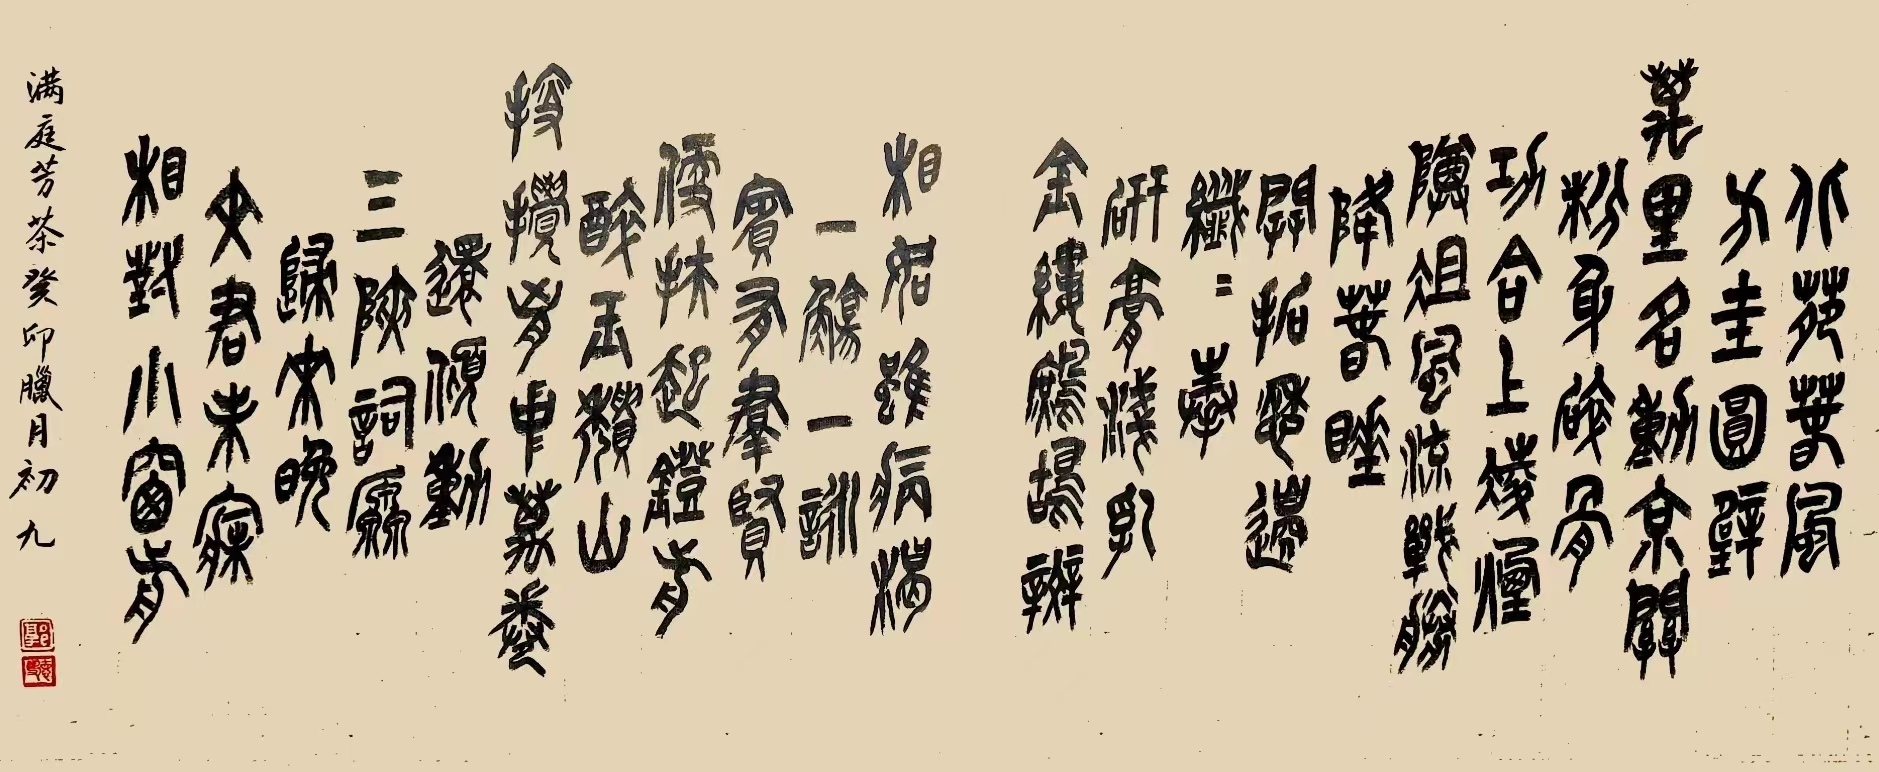 北苑春風
方圭圓璧
萬里名動京關
粉身碎骨
功合上凌煙
尊俎風流戰勝
降春睡
開拓愁邊
纖纖捧
研膏濺乳
金縷鷓鴣斑
相如雖病渴
一觴一詠
賓有羣賢
便扶起鐙前
醉玉頹山
搜攪胷中萬卷
還傾動
三峽詞源
歸來晚
文君未寐
相對小窗前
满庭芳茶癸卯臘月初九